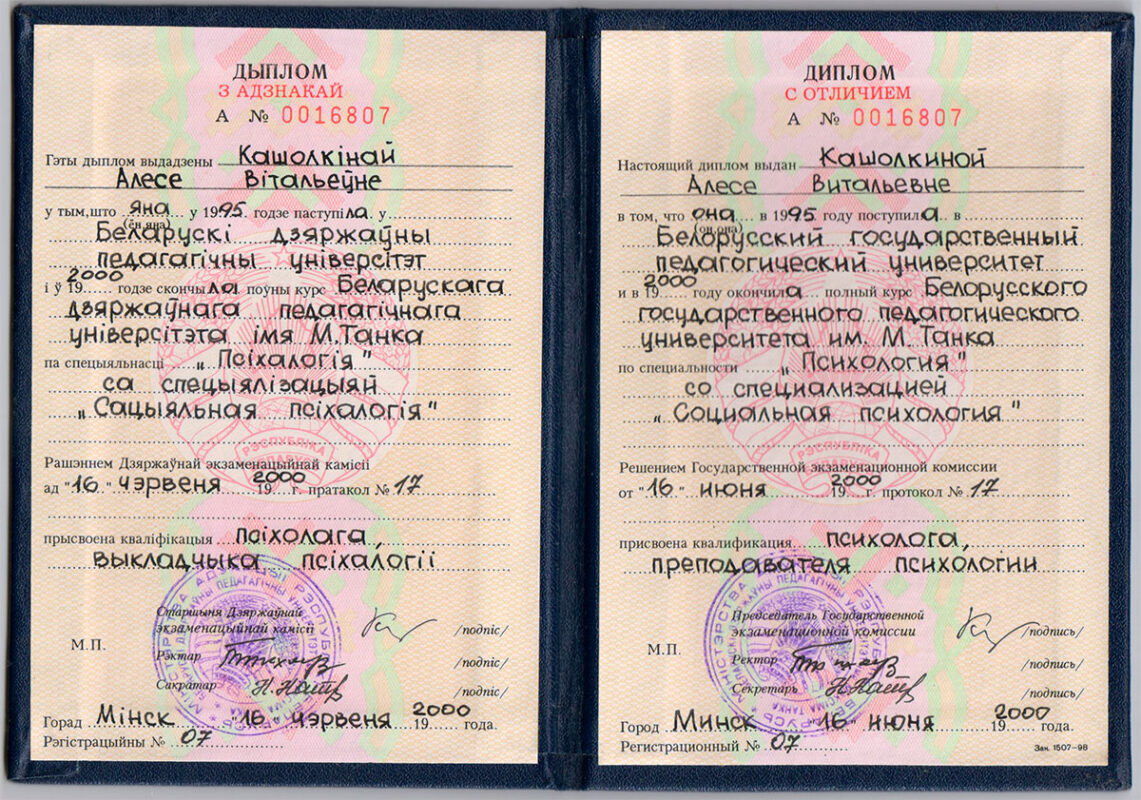 ДЫПЛОМ
З АДЗНАКАЙ
А № 0016807
Гэты дыплом выдадзены Кашолкінай
Алесе Вітальеўне
у тым,што яна у 1995 годзе паступіла у
(ён,яна)
Беларускі дзяржаўны
педагагічны універсітэт
і ў 19 2000 годзе скончыла поўны курс Беларускага
дзяржаўнага педагагічнага
універсітэта імя М.Танка
па спецыяльнасці „Псіхалогія"
са спецыялізацыяй
„Сацыяльная псіхалогія"
РЭСПУБЛІКА
БЕЛАРУСЬ
Рашэннем Дзяржаўнай экзаменацыйнай камісіі
ад "16" чэрвеня 19 2000 г. пратакол № 17
прысвоена кваліфікацыя псіхолага,
выкладчыка псіхалогіі
Старшыня Дзяржаўнай
экзаменацыйнай камісіі /подпіс/
М.П.
Рэктар /подпіс/
Сакратар /подпіс/
Горад Мінск "16 чэрвеня 19 2000 года.
Рэгістрацыйны № 07
ДИПЛОМ
С ОТЛИЧИЕМ
А № 0016807
Настоящий диплом выдан Кашолкиной
Алесе Витальевне
в том, что она в 1995 году поступила в
(он,она)
Белорусский государственный
педагогический университет
и в 19 2000 году окончила полный курс Белорусского
государственного педагогического
университета им. М. Танка
по специальности „Психология"
со специализацией
„Социальная психология"
РЭСПУБЛІКА
БЕЛАРУСЬ
Решением Государственной экзаменационной комиссии
от "16" июня 19 2000 г. протокол № 17
присвоена квалификация психолога,
преподавателя психологии
Председатель Государственной
экзаменационной комиссии /подпись/
М.П.
Ректор /подпись/
Секретарь /подпись/
Город Минск "16" июня 19 2000 года.
Регистрационный № 07
Зак. 1507–98